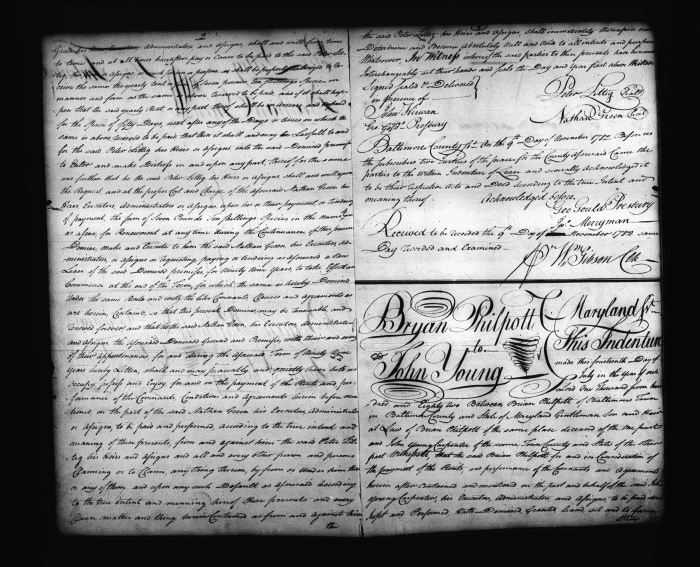 2
to time and at all times hereafter pay or Cause to be paid to the said Peter Lit-
tig his Heirs or Assigns
the same the yearly Rent of Seven pounds Ten Shillings Specie, in
manner and form as the same is above reserved to be paid and if it shall hap-
pen that the said yearly Rent or any part thereof shall be in arrear and unpaid
for the Space of fifty Days, next after any of the Days or times on which the
same is above reserved to be paid that then it shall and may be Lawfull to and
for the said Peter Littig his Heirs or Assigns into the said Demised premises
to Enter and make Distress in and upon any part thereof for the same
and further that he the said Peter Littig his Heirs or Assigns shall and will upon
the Request and at the proper Cost and Charge of the aforesaid Nathan Green his
Heirs Executors Administrators or Assigns upon his or their payment or tending
of payment, the sum of Seven Pounds Ten Shillings Specie in the manner
as afore, for Renewment at any time during the Continuance of this present
Demise, make and Execute to him the said Nathan Green, his Executors, Ad-
ministrators, or Assigns so requesting, paying or tending as aforesaid a new
Lease of the said Demised premises, for Ninety Nine Years, to take Effect or
Commence at the end of the Term, for which the same is hereby Demised
Under the same Rents and with the like Covenants Clauses and agreements as
are herein Contained, so that this present Demise, may be renewable, and
renewed forever and that he the said Nathan Green, his Executors, Administrators
and Assigns the aforesaid Demised Ground and Premises, with their and every
of their appurtenances, for and during the aforesaid Term of Ninety Nine
Years hereby Letten, shall and may peaceably and quietly have hold use
occupy possess and Enjoy for and on the payment of the Rents and per-
formance of the Covenants, Conditions and Agreements herein before men-
tioned, on the part of the said Nathan Green his Executors, Administrators
or Assigns, to be paid and performed, according to the true intent and
meaning of these presents, from and against him the said Peter Lit-
tig his Heirs and Assigns and all and every other person and persons
Claiming or to Claim any thing therein, by from or under him them
or any of them, and upon any such Default as aforesaid according
to the true intent and meaning hereof these presents and every
Clause matter and thing herein Contained as from and against him
the
the said Peter Littig his Heirs and Assigns shall immediately thereupon cease
Determine and Become absolutely Null and Void to all intents and purposes
Whatsoever, In Witness whereof the said parties to these presents have hereunto
Interchangeably set their hands and seals the Day and Year first above Written
Signed Sealed & Delivered
in presence of
Peter Littig Seal
John Kirwan
Nathan Green Seal
Geo Gold. Presbury
Baltimore County sc. On the 9th Day of November 1782 Before us
the Subscribers two Justices of the peace for the County aforesaid Came the
parties to the within Indenture of Lease and severally Acknowledged it
to be their respective Act and Deed according to the true Intent and
meaning thereof. Acknowledged before
Geo Gould Presbury
Jos. Merryman
Received to be recorded the 9th Day of November 1782 same
Day recorded and Examined
Pr Wm Gibson Clk
Bryan Philpott
to
John Young
Maryland sc.
This Indenture
made this fourteenth Day of
July in the Year of our
Lord One Thousand seven hun-
dred and Eighty two Between Brian Philpott of Baltimore Town
in Baltimore County and State of Maryland Gentleman Son and Heir
at Law of Brian Philpott of the same place deceased of the one part
and John Young Carpenter of the same Town County and State of the other
part Witnesseth that the said Brian Philpott for and in Consideration of
the payment of the Rents and performance of the Covenants and Agreements
herein after contained and mentioned on the part and behalf of the said John
Young Carpenter his Executors Administrators and Assigns to be paid done
kept and Performed Hath Demised Granted Leased set and to farm